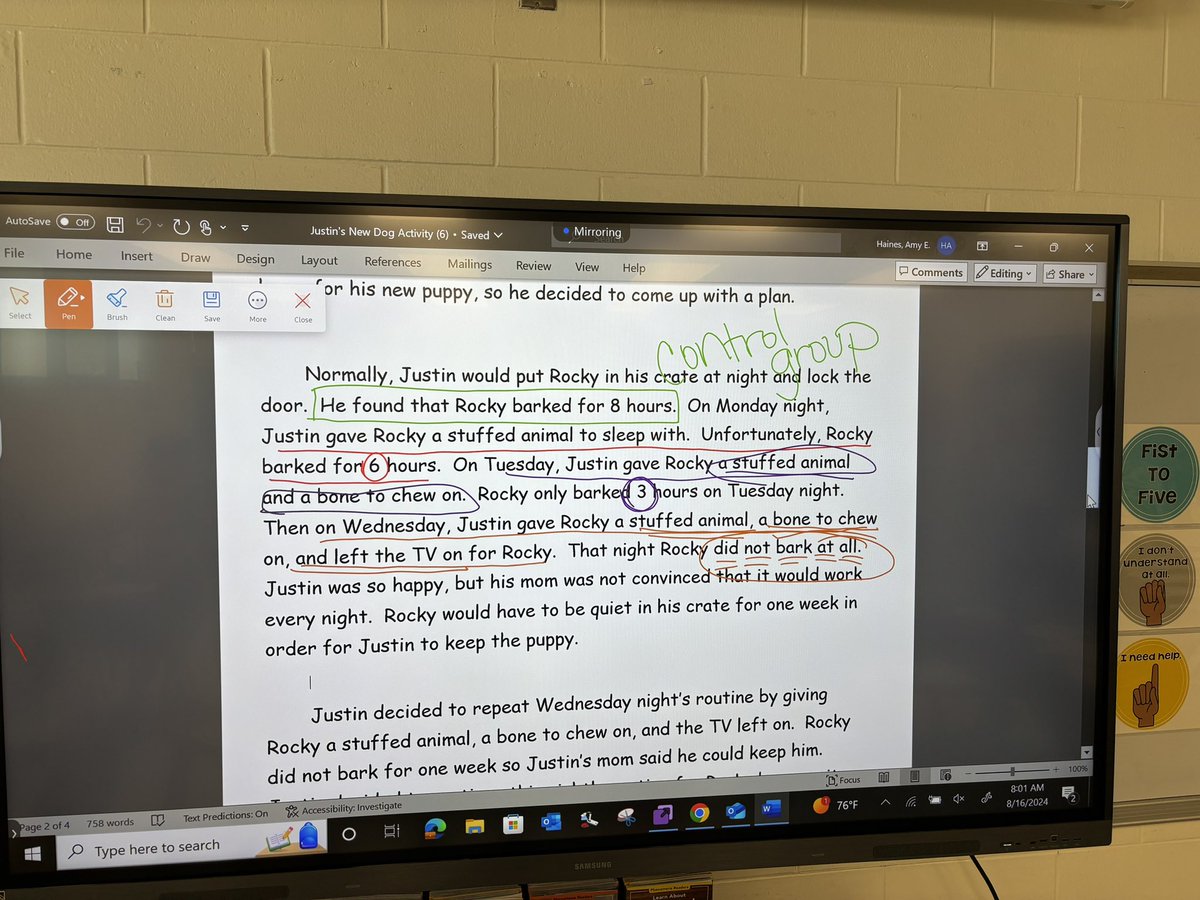 AutoSave Off
Justin's New Dog Activity (6) • Saved
Mirroring
Haines, Amy E. HA
File Home Insert Draw Design Layout References Mailings Review View Help
Comments Editing Share
Select Pen Brush Clean Save More Close
for his new puppy, so he decided to come up with a plan.
control group
Normally, Justin would put Rocky in his crate at night and lock the
door. He found that Rocky barked for 8 hours. On Monday night,
Justin gave Rocky a stuffed animal to sleep with. Unfortunately, Rocky
barked for 6 hours. On Tuesday, Justin gave Rocky a stuffed animal
and a bone to chew on. Rocky only barked 3 hours on Tuesday night.
Then on Wednesday, Justin gave Rocky a stuffed animal, a bone to chew
on, and left the TV on for Rocky. That night Rocky did not bark at all.
Justin was so happy, but his mom was not convinced that it would work
every night. Rocky would have to be quiet in his crate for one week in
order for Justin to keep the puppy.
Justin decided to repeat Wednesday night's routine by giving
Rocky a stuffed animal, a bone to chew on, and the TV left on. Rocky
did not bark for one week so Justin's mom said he could keep him.
Page 2 of 4 758 words Text Predictions: On Accessibility: Investigate
Focus
100%
Type here to search
76°F
8:01 AM
8/16/2024
2
SAMSUNG
FiST
TO
FiVE
I don't
understand
at all.
I need help.
Learn About